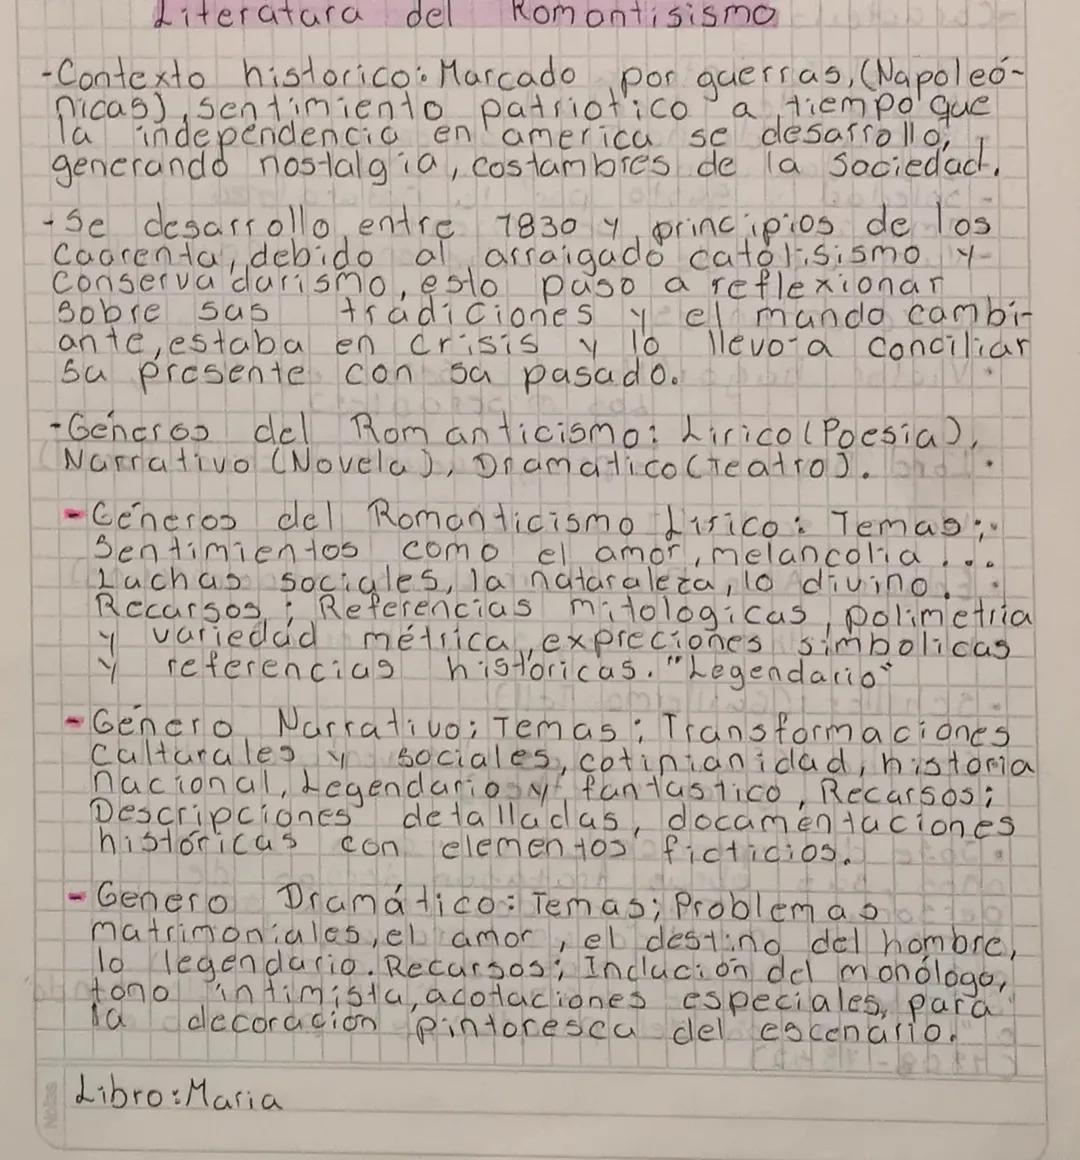 Literatura del Romontisismo
-Contexto historico: Marcado por guerras, (Napoleó-
nicas), sentimiento patriotico a tiempo que
la independencia en america se desarrollo,
generando nostalgia, costumbres de la sociedad.
-Se desarrollo entre 1830 y principios de los
cuarenta, debido al arraigado catolisismo y
conservadurismo, esto puso a reflexionar
sobre sus tradiciones y el mundo cambi-
ante, estaba en crisis y lo llevo a conciliar
su presente con su pasado.
-Géneros del Romanticismo: Lirico (Poesia),
Narrativo (Novela), Dramatico (Teatro).
-Géneros del Romanticismo Lirico: Temas;
Sentimientos como el amor, melancolia...
Luchas sociales, la naturaleza, lo divino.
Recursos; Referencias mitologicas, polimetria
y variedad métrica, expreciones simbolicas
y referencias históricas. "Legendario"
-Género Narrativo; Temas; Transformaciones
culturales y sociales, cotinianidad, historia
nacional, Legendario y fantastico, Recursos;
Descripciones detalladas, documentaciones
históricas con elementos ficticios.
-Genero Dramático: Temas; Problemas
matrimoniales, el amor, el destino del hombre,
lo legendario. Recursos; Inclución del monólogo,
tono intimista, acotaciones especiales, para
la decoración pintoresca del escenario.
Notas
Libro: Maria